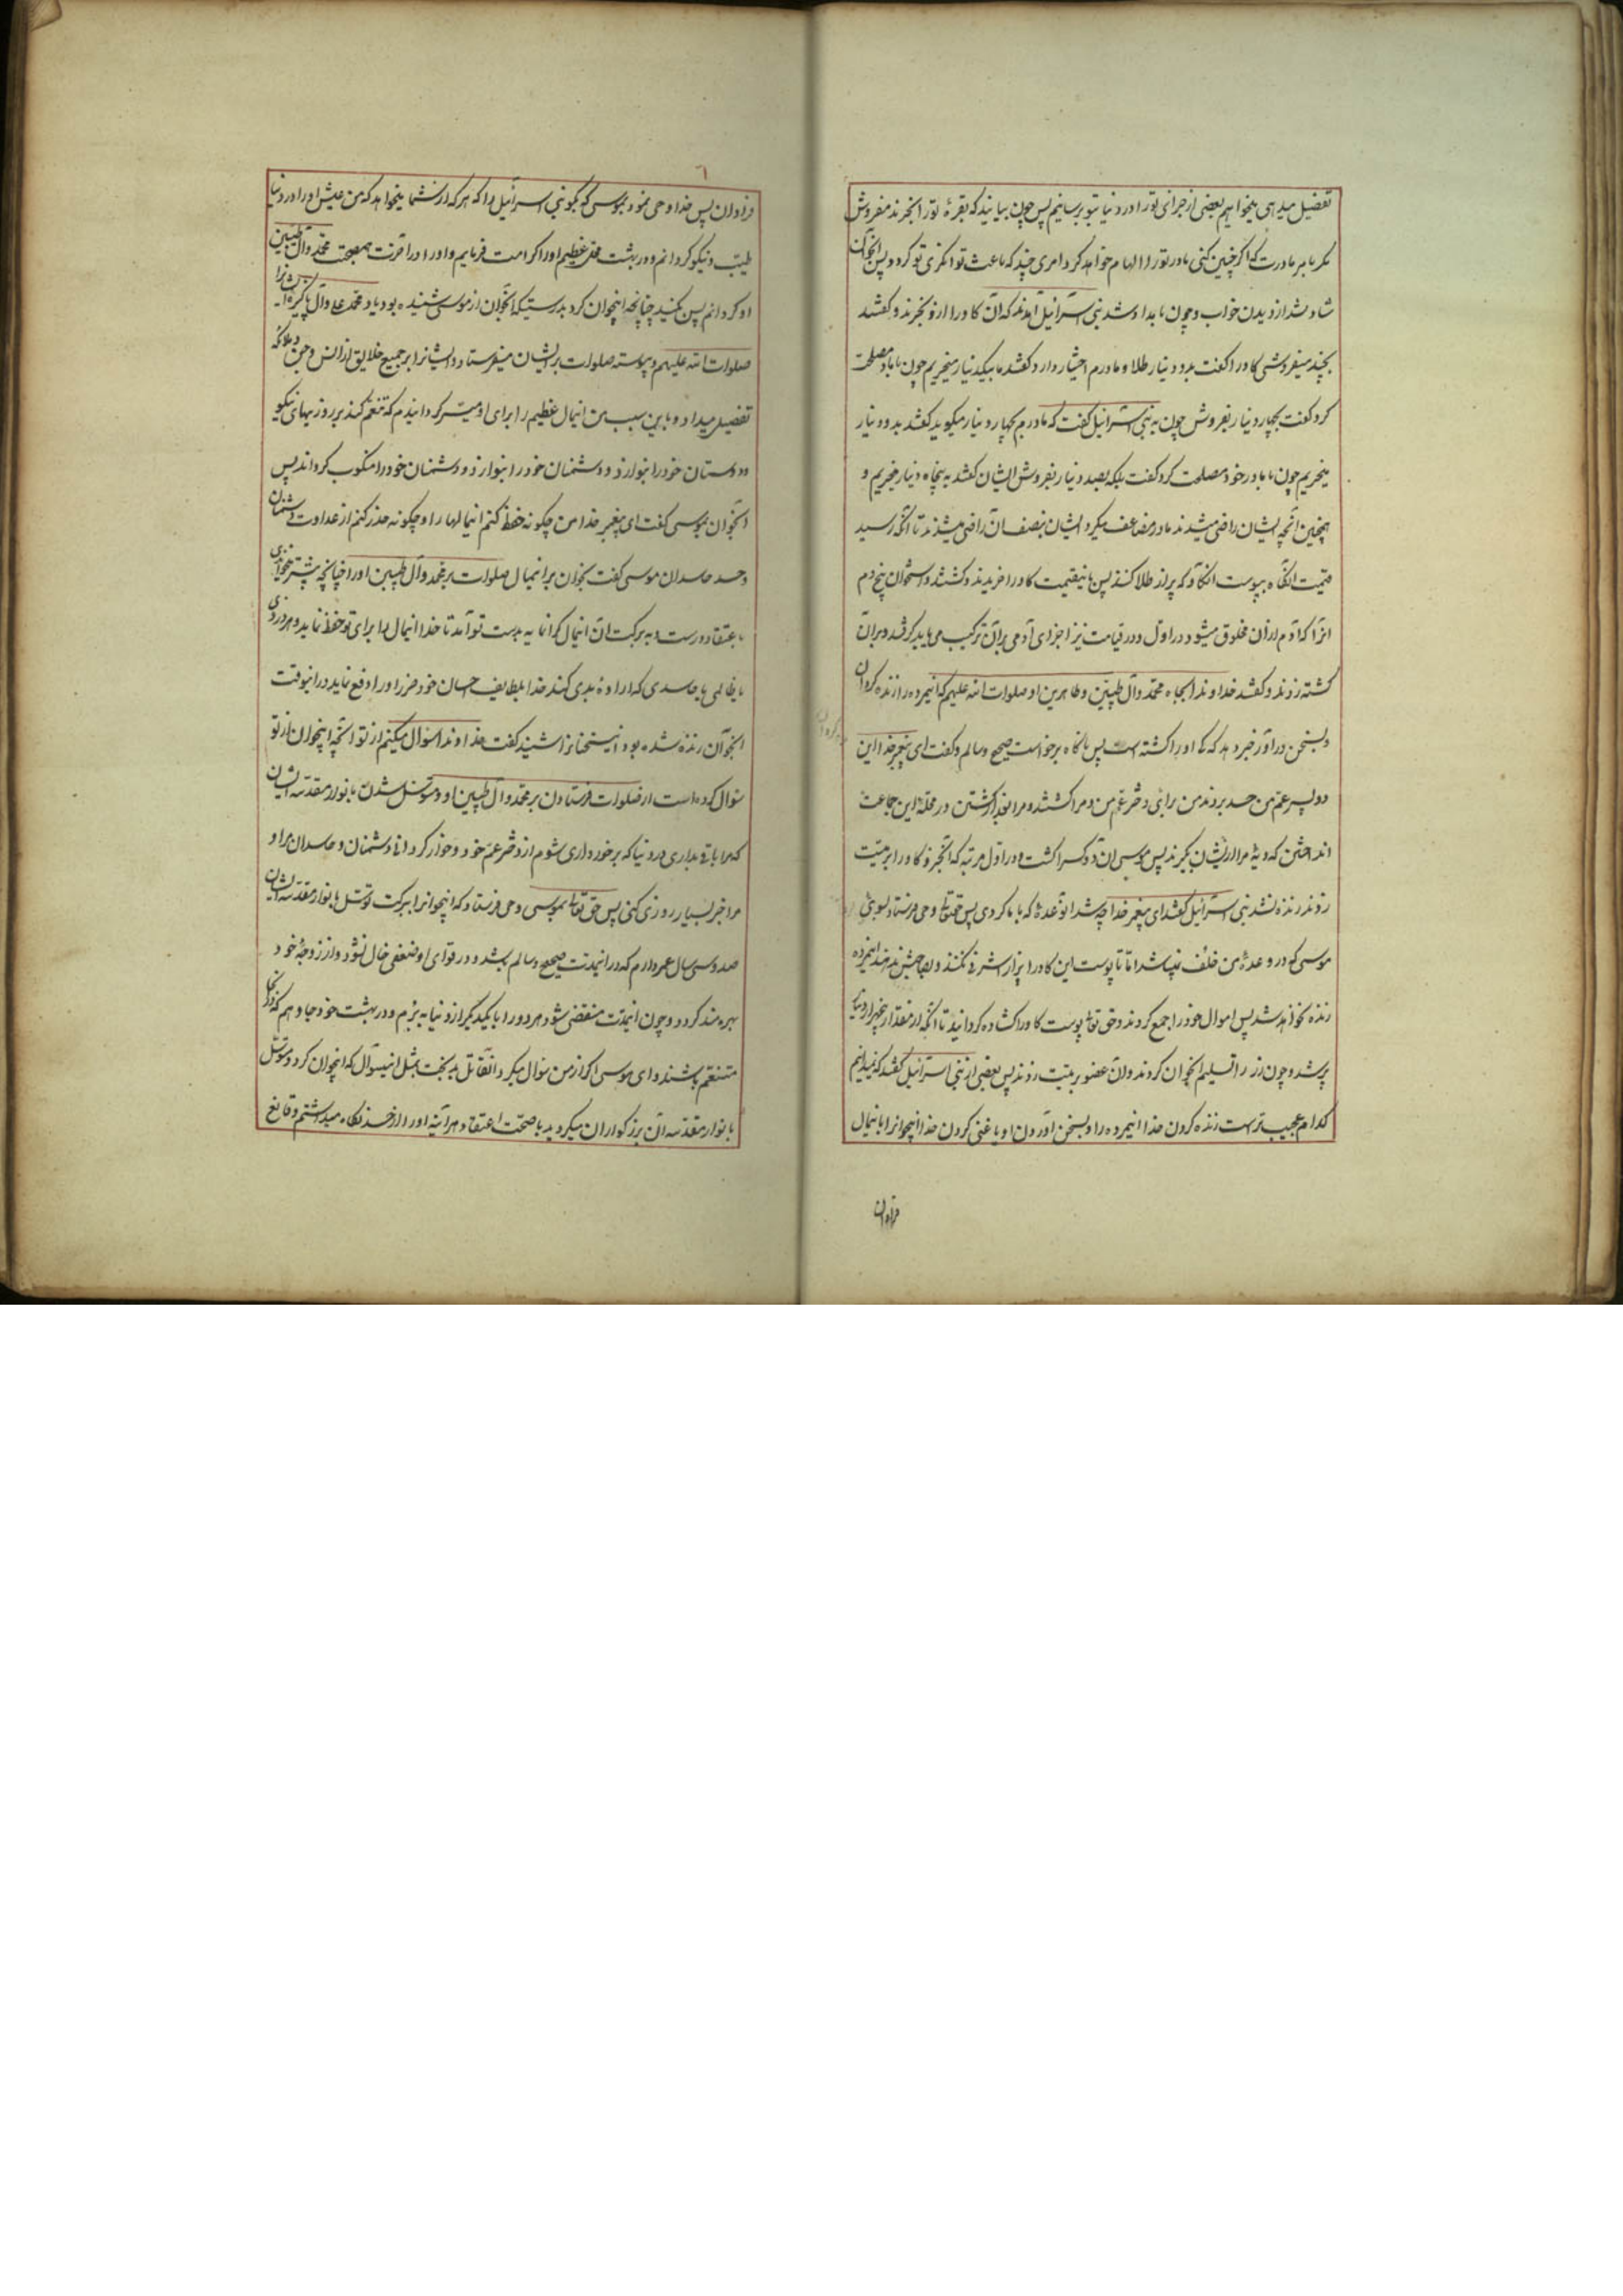 تفضیل میدهی میخواهیم بعضی از جزای تو را در دنیا بتو برسانیم پس چون بیایند که بقرهٔ تو را بخرند مفروش
مگر بامر مادرت که اگر چنین کنی مادر تو را الهام خواهد کرد امری چند که باعث توانگری تو گردد پس آنجوان
شاد شد از دیدن خواب و چون بامداد شد بنی اسرائیل آمدند که آن گاو را ازو بخرند و گفتند
بچند میفروشی گاو را گفت بدو دینار طلا و مادرم اختیار دارد گفتند ما بیکدینار میخریم چون با مادر مصلحت
کرد گفت بچهار دینار بفروش چون به بنی اسرائیل گفت که مادرم بچهار دینار میگوید گفتند بدو دینار
میخریم چون با مادر خود مصلحت کرد گفت بلکه بصد دینار بفروش ایشان گفتند به پنجاه دینار میخریم و
همچنین آنچه ایشان راضی میشدند مادر مضاعف میکرد ایشان بنصف آن راضی میشدند تا آنکه رسید
قیمت آنگاو به پوست آنگاو که پر از طلا کنند پس باینقیمت گاو را خریدند و کشتند و استخوان بیخ دم
انرا که آدم از آن مخلوق میشود در اول و در قیامت نیز اجزای آدمی بران ترکیب می یابد گرفتند و بران
کشته زدند و گفتند خداوندا بجاه محمد و آل طیبین و طاهرین او صلوات الله علیهم که اینمرده را زنده گردان
و بسخن در آور خبر دهد که که او را کشته است پس ناگاه برخواست صحیح و سالم و گفت ای پیغمبر خدا این
دو پسر عم من حسد بردند من برای دختر عم من و مرا کشتند و مرا بعد از کشتن در محله این جماعت
انداختند که دیهٔ مرا از ایشان بگیرند پس موسی آن دو کس را کشت و در اول مرتبه که آنجزو گاو را بر میت
زدند زنده نشد بنی اسرائیل گفتند ای پیغمبر خدا چه شد آنوعدهٔ که با ما کردی پس حقتعالی وحی فرستاد بسوی
موسی که در وعدهٔ من خلف نمیباشد اما تا پوست این گاو را پر از اشرفی نکنند و بصاحبش ندهند اینمرده
زنده نخواهد شد پس اموال خود را جمع کردند و حق تعالی پوست گاو را گشاده گردانید تا آنکه از مقدار پنجهزار دینار
پر شد و چون زر را تسلیم آنجوان کردند و آن عضو بر میت زدند پس بعضی از بنی اسرائیل گفتند که نمیدانیم
کدام عجیب ترست زنده کردن خدا اینمرده را و بسخن آوردن او یا غنی کردن خدا اینجوانرا باینمال
فراوان
فراوان پس خدا وحی نمود بموسی که بگو بنی اسرائیل را که هر که از شما میخواهد که من عیش او را در دنیا
طیب و نیکو گردانم و در بهشت محل عظیم او را کرامت فرمایم و او را در آخرت هم صحبت محمد و آل طیبین
او گردانم پس بکنید چنانچه اینجوان کرد بدرستیکه آنجوان از موسی شنیده بود یاد محمد و علی و آل پاکیزه ایشانرا
صلوات الله علیهم و پیوسته صلوات بر ایشان میفرستاد و ایشانرا بر جمیع خلایق از انس و جن و ملائکه
تفضیل میداد و باین سبب من اینمال عظیم را برای او میسر گردانیدم که تنعم کند بروزیهای نیکو
و دوستان خود را بنوازد و دشمنان خود را منکوب گرداند پس
آنجوان بموسی گفت ای پیغمبر خدا من چگونه حفظ کنم این مالها را و چگونه حذر کنم از عداوت دشمنان
و حسد حاسدان موسی گفت بخوان بر اینمال صلوات بر محمد و آل طیبین او را چنانچه پیشتر میخواندی
باعتقاد درست و به برکت آن اینمال گرانمایه بدست تو آمد تا خدا اینمال را برای تو حفظ نماید و هر دزدی
یا ظالمی یا حاسدی که ارادهٔ بدی کند خدا بلطایف احسان خود ضرر او را دفع نماید در اینوقت
آنجوان زنده شده بود اینسخنانرا شنید گفت خداوندا سؤال میکنم از تو آنچه اینجوان از تو
سؤال کرده است از صلوات فرستادن بر محمد و آل طیبین او و متوسل شدن بانوار مقدسه ایشان
که مرا باقی بداری در دنیا که برخورداری شوم از دختر عم خود و خوار گردانی دشمنان و حاسدان مرا و
مرا خیر بسیار روزی کنی پس حق تعالی بموسی وحی فرستاد که اینجوانرا ببرکت توسل بانوار مقدسه ایشان
صد و سی سال عمر دادم که در اینمدت صحیح و سالم باشد و در قوای او ضعفی حال نشود و از زوجهٔ خود
بهره مند گردد و چون اینمدت منقضی شود هر دو را با یکدیگر از دنیا ببرم و در بهشت خود جا دهم که در آنجا
متنعم باشند و ای موسی اگر از من سؤال میکرد آنقاتل بدبخت بمثل اینسؤال که اینجوان کرد و متوسل
بانوار مقدسه آن بزرگواران میگردید با صحت اعتقاد هر آینه او را از حسد نگاه میداشتم و قانع